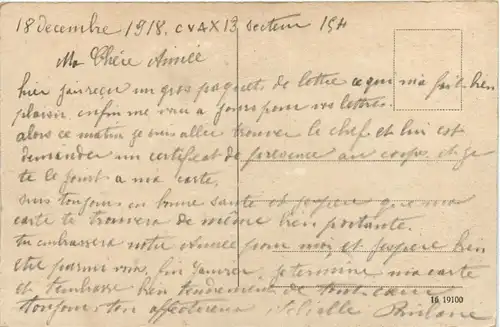 18 decembre 1918. CVAX13 secteur 154
Ma Chère Aimée
hier jai reçu un gros paquets de lettre ce qui ma fait bien
plaisir enfin me a jours pour vos lettres.
alors ce matin je suis aller trouver le chef et lui est
demander un certificat de présence au corps et je
te le joint a ma carte,
suis toujours en bonne santé et j'espere que ma
carte te trouvera de même bien portante.
tu embrassera notre Aimée pour moi et j'espere bien
etre parmi vous fin Janvier. je termine ma carte
et t'embrasse bien tendrement de tout cœur
toujours ton affectueux
16 19100